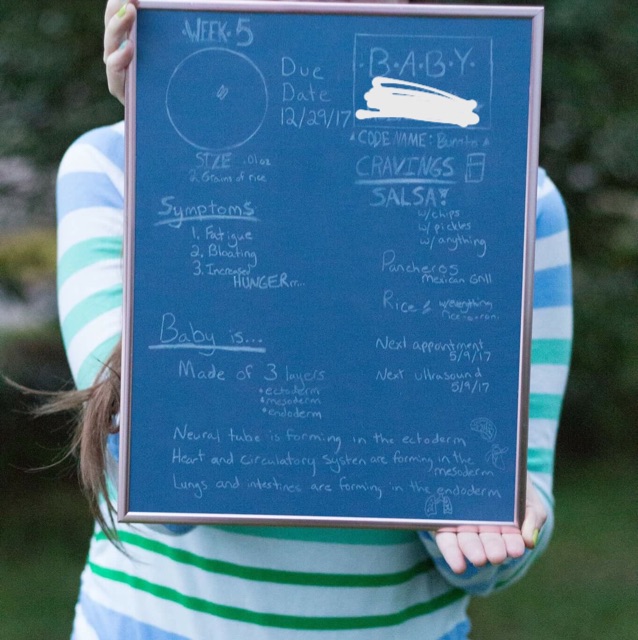 WEEK·5
Due
Date
12/29/17
SIZE .01 oz
2 Grains of rice
Symptoms
1. Fatigue
2. Bloating
3. Increased
HUNGER...
Baby is...
Made of 3 layers
•ectoderm
•mesoderm
•endoderm
B·A·B·Y·
CODE NAME: Burrito
CRAVINGS
SALSA!
w/chips
w/ pickles
w/ anything
Pancheros
mexican Grill
Rice &
Next appointment
5/9/17
Next ultrasound
5/9/17
Neural tube is forming in the ectoderm
Heart and circulatory system are forming in the
mesoderm
Lungs and intestines are forming in the endoderm